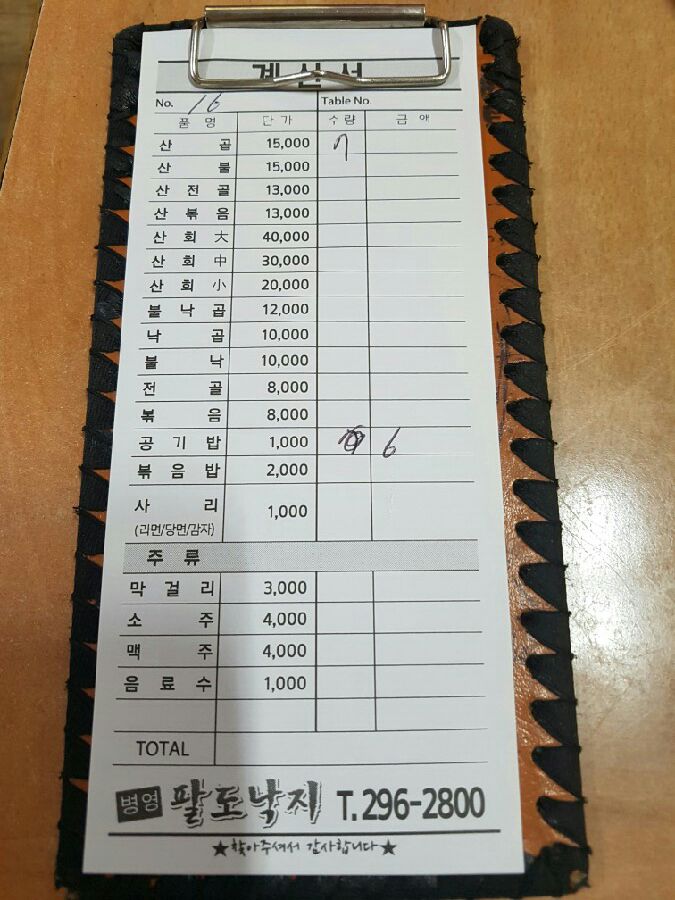 계산서
No. 16 Table No.
품 명 단 가 수 량 금 액
산 곱 15,000 7
산 불 15,000
산 전 골 13,000
산 볶 음 13,000
산 회 大 40,000
산 회 中 30,000
산 회 小 20,000
불 낙 곱 12,000
낙 곱 10,000
불 낙 10,000
전 골 8,000
볶 음 8,000
공 기 밥 1,000 6
볶 음 밥 2,000
사 리 1,000
(라면/당면/감자)
주 류
막 걸 리 3,000
소 주 4,000
맥 주 4,000
음 료 수 1,000
TOTAL
병영 팔도낙지 T.296-2800
★찾아주셔서 감사합니다★